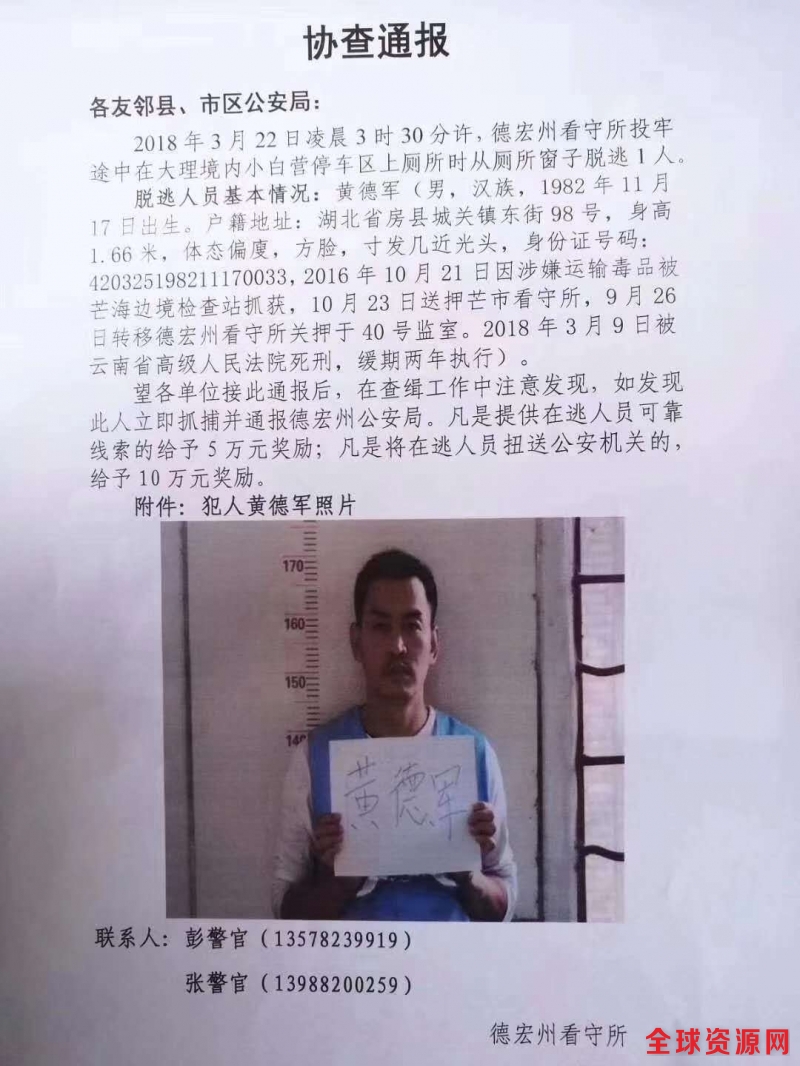 协查通报
各友邻县、市区公安局：
2018年3月22日凌晨3时30分许，德宏州看守所投牢
途中在大理境内小白营停车区上厕所时从厕所窗子脱逃1人。
脱逃人员基本情况：黄德军（男，汉族，1982年11月
17日出生。户籍地址：湖北省房县城关镇东街98号，身高
1.66米，体态偏廋，方脸，寸发几近光头，身份证号码：
420325198211170033，2016年10月21日因涉嫌运输毒品被
芒海边境检查站抓获，10月23日送押芒市看守所，9月26
日转移德宏州看守所关押于40号监室。2018年3月9日被
云南省高级人民法院死刑，缓期两年执行）。
望各单位接此通报后，在查缉工作中注意发现，如发现
此人立即抓捕并通报德宏州公安局。凡是提供在逃人员可靠
线索的给予5万元奖励；凡是将在逃人员扭送公安机关的，
给予10万元奖励。
附件：犯人黄德军照片
170
160
150
140
黄德军
联系人：彭警官（13578239919）
张警官（13988200259）
德宏州看守所
全球资源网